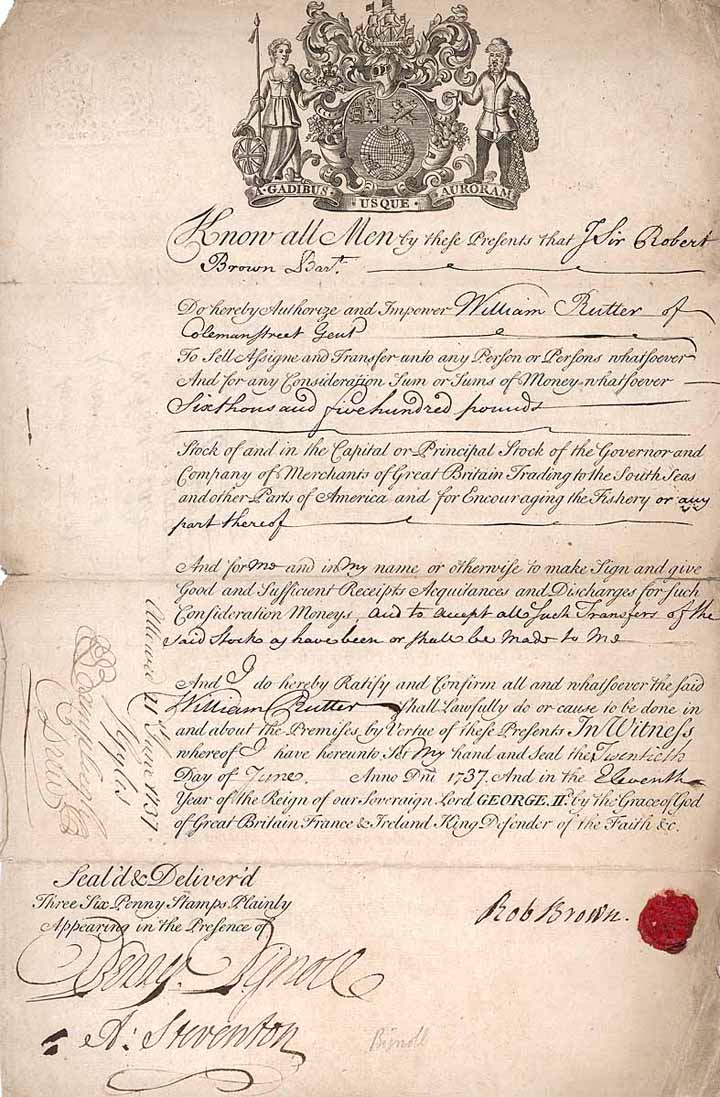 A GADIBUS USQUE AURORAM
Know all Men by these Presents that I Sir Robert
Brown Bart.
Do hereby Authorize and Impower William Rutter of
Colemanstreet Gent
To Sell Assigne and Transfer unto any Person or Persons whatsoever
And for any Consideration Sum or Sums of Money whatsoever
Six thousand five hundred pounds
Stock of and in the Capital or Principal Stock of the Governor and
Company of Merchants of Great Britain Trading to the South Seas
and other Parts of America and for Encouraging the Fishery or any
part thereof
And for Me and in My name or otherwise to make Sign and give
Good and Sufficient Receipts Acquitances and Discharges for such
Consideration Moneys and to accept all Such Transfers of the
said Stock as have been or shall be made to Me
And I do hereby Ratify and Confirm all and whatsoever the said
William Rutter shall Lawfully do or cause to be done in
and about the Premises by Vertue of these Presents In Witness
whereof I have hereunto Set My hand and Seal the Twentieth
Day of June. Anno Dni 1737. And in the Eleventh
Year of the Reign of our Soveraign Lord GEORGE IId. by the Grace of God
of Great Britain France & Ireland King Defender of the Faith &c.
Allowed 21 June 1737
Seal'd & Deliver'd
Three Six Penny Stamps Plainly
Appearing in the Presence of
Rob Brown.
A: Steventon